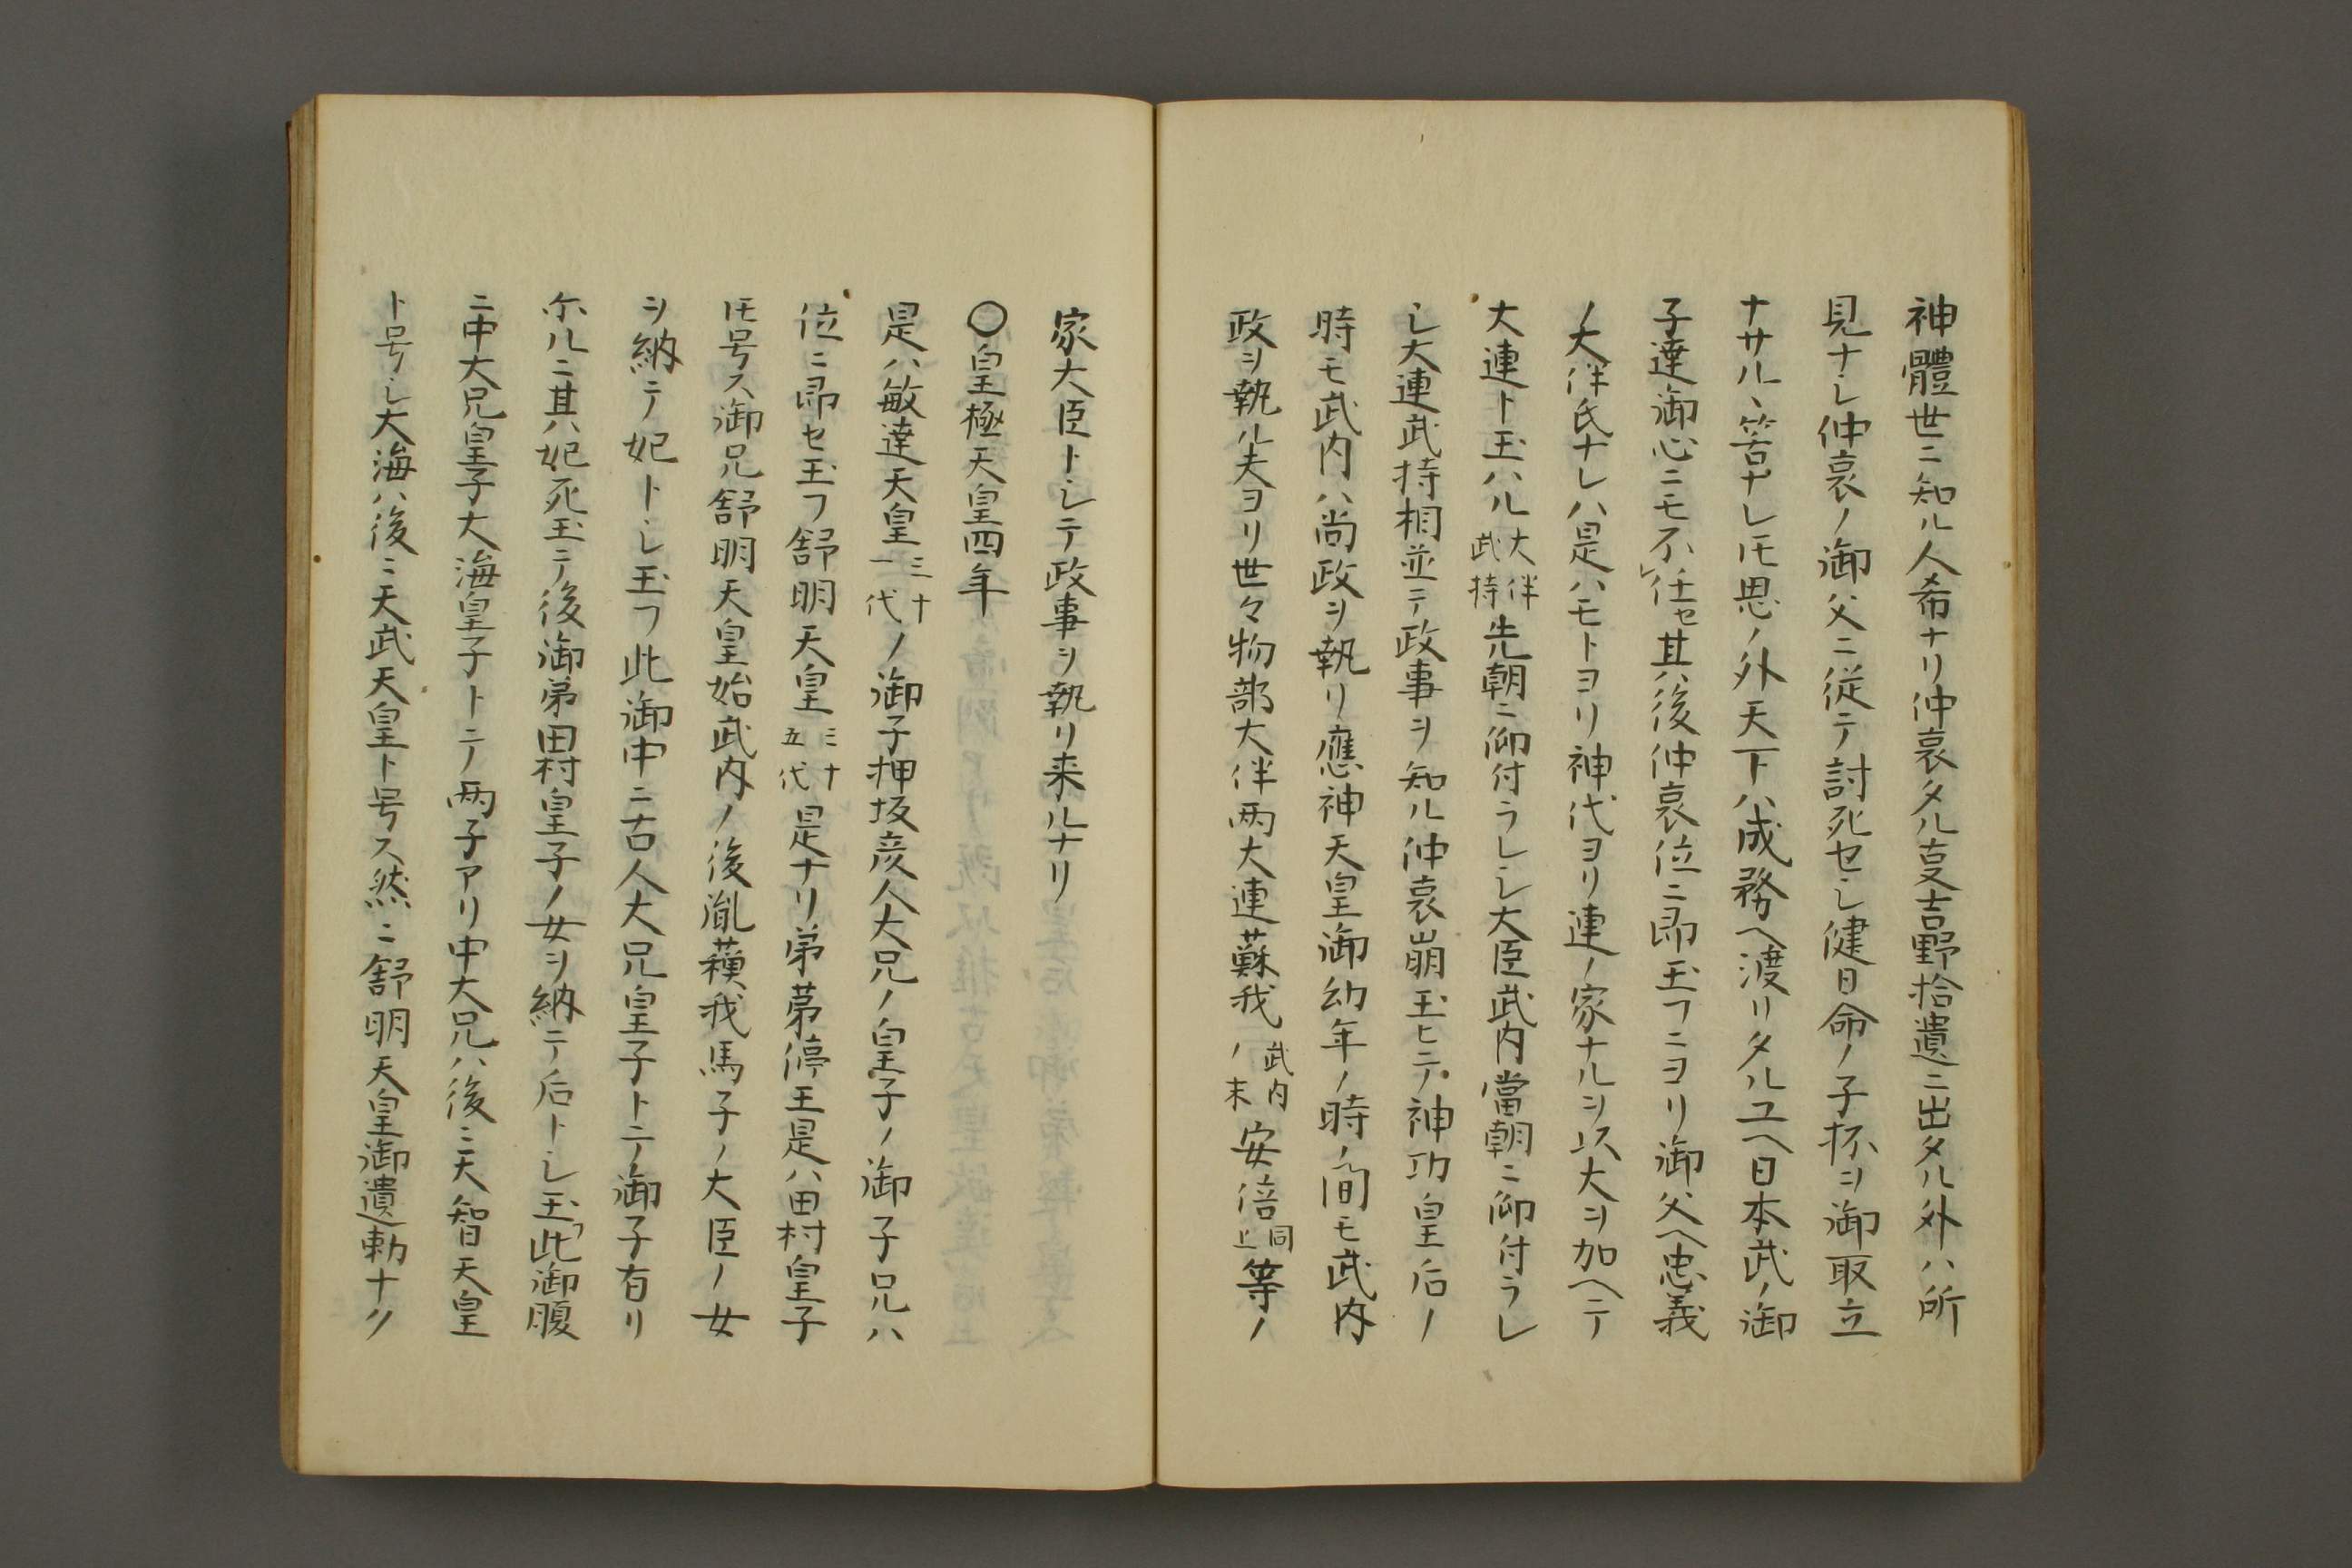 神體世ニ知ル人希ナリ仲哀タル㕝吉野拾遺ニ出タル外ハ所
見ナシ仲哀ノ御父ニ従テ討死セシ健日命ノ子孫ヲ御取立
ナサル丶筈ナレ𪜈思ノ外天下ハ成務ヘ渡リタルユヘ日本武ノ御
子達御心ニモ不レ任セ其ハ後仲哀位ニ即玉フニヨリ御父ヘ忠義
ノ大伴氏ナレハ是ハモトヨリ神代ヨリ連ノ家ナルヲ以大ヲ加ヘテ
大連ト玉ハル大伴武持先朝ニ仰付ラレシ大臣武内當朝ニ仰付ラレ
シ大連武持相並テ政事ヲ知ル仲哀崩玉ヒテ神功皇后ノ
時モ武内ハ尚政ヲ執リ應神天皇御幼年ノ時ノ間モ武内
政ヲ執ル夫ヨリ世々物部大伴両大連蘇我武内ノ末安倍同上等ノ
家大臣トシテ政事ヲ執リ来ルナリ
〇皇極天皇四年
是ハ敏達天皇三十一代ノ御子押坂彦人大兄ノ皇子ノ御子兄ハ
位ニ即セ玉フ舒明天皇三十五代是ナリ弟茅渟王是ハ田村皇子
𪜈号ス御兄舒明天皇始武内ノ後胤蘓我馬子ノ大臣ノ女
ヲ納テ妃トシ玉フ此御中ニ古人大兄皇子トテ御子有リ
尓ルニ其ハ妃死玉テ後御弟田村皇子ノ女ヲ納テ后トシ玉フ此御腹
ニ中大兄皇子大海皇子トテノ両子アリ中大兄ハ後ニ天智天皇
ト号シ大海ハ後ニ天武天皇ト号ス然ニ舒明天皇御遺勅ナク